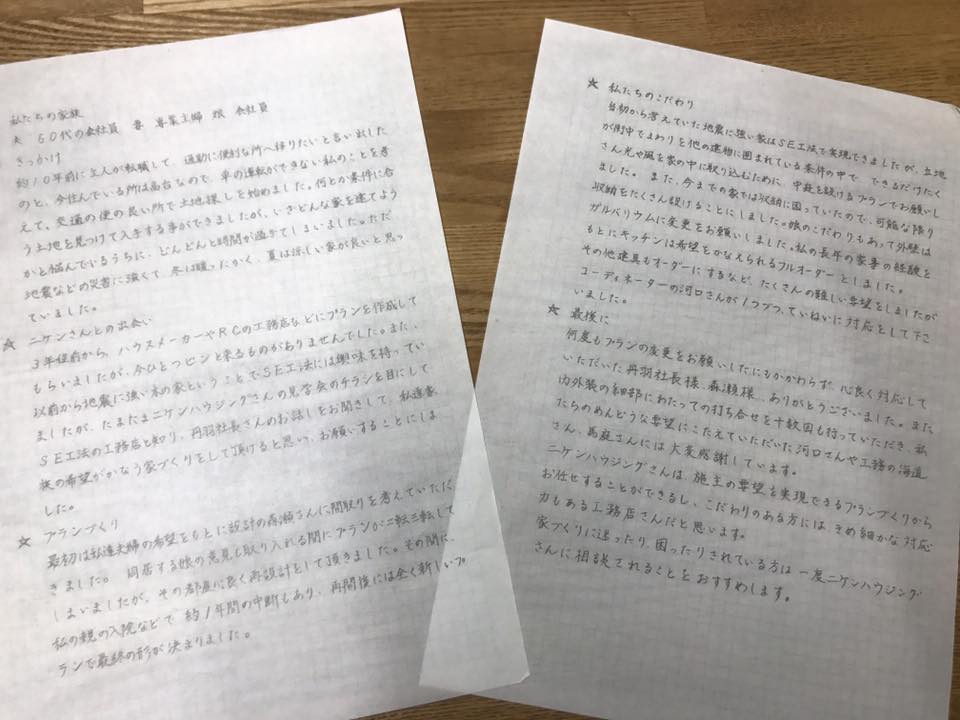 私たちの家族
夫 60代の会社員 妻 専業主婦 娘 会社員
きっかけ
約10年前に主人が転職して、通勤に便利な所へ移りたいと言い出した
のと、今住んでいる所は高台なので、車の運転ができない私のことを考
えて、交通の便の良い所で土地探しを始めました。何とか条件に合
う土地を見つけて入手する事ができましたが、いざどんな家を建てよう
かと悩んでいるうちに、どんどんと時間が過ぎてしまいました。ただ
地震などの災害に強くて 冬は暖ったかく、夏は涼しい家が良いと思っ
ていました。
☆ ニケンさんとの出会い
3年位前から、ハウスメーカーやRCの工務店などにプランを作成して
もらいましたが、今ひとつピンと来るものがありませんでした。また、
以前から地震に強い木の家ということでSE工法には興味を持ってい
ましたが、たまたまニケンハウジングさんの見学会のチラシを目にして
SE工法の工務店と知り、丹羽社長さんのお話しをお聞きして、私達家
族の希望がかなう家づくりをして頂けると思い、お願いすることにしま
した。
☆ プランづくり
最初は私達夫婦の希望をもとに設計の森瀬さんに間取りを考えていただ
きました。 同居する娘の意見も取り入れる間にプランが二転三転して
しまいましたが、その都度に良く再設計をして頂きました。その間に、
私の親の入院などで 約1年間の中断もあり、再開後には全く新しいプ
ランで最終の形が決まりました。
☆ 私たちのこだわり
当初から考えていた地震に強い家はSE工法で実現できましたが、土地
が街中でまわりを他の建物に囲まれている条件の中で、できるだけたく
さん光や風を家の中に取り込むために、中庭を設けるプランでお願いし
ました。また、今までの家では収納に困っていたので、可能な限り
収納をたくさん設けることにしました。娘のこだわりもあって外壁は
ガルバリウムに変更をお願いしました。私の長年の家事の経験を
もとにキッチンは希望をかなえられるフルオーダーとしました。
その他建具もオーダーにするなど、たくさんの難しい要望をしましたが
コーディネーターの河口さんが1つづつ、ていねいに対応をして下さ
いました。
☆ 最後に
何度もプランの変更をお願いしたにもかかわらず、心良く対応して
いただいた丹羽社長様、森瀬様、ありがとうございました。また
内外装の細部にわたっての打ち合せを十数回も行っていただき、私
たちのめんどうな要望にこたえていただいた河口さんや工務の海道
さん、馬庭さんには大変感謝しています。
ニケンハウジングさんは、施主の要望を実現できるプランづくりから
お任せすることができるし、こだわりのある方には、きめ細かな対応
力もある工務店さんだと思います。
家づくりに迷ったり、困ったりされている方は 一度ニケンハウジング
さんに相談されることをおすすめします。